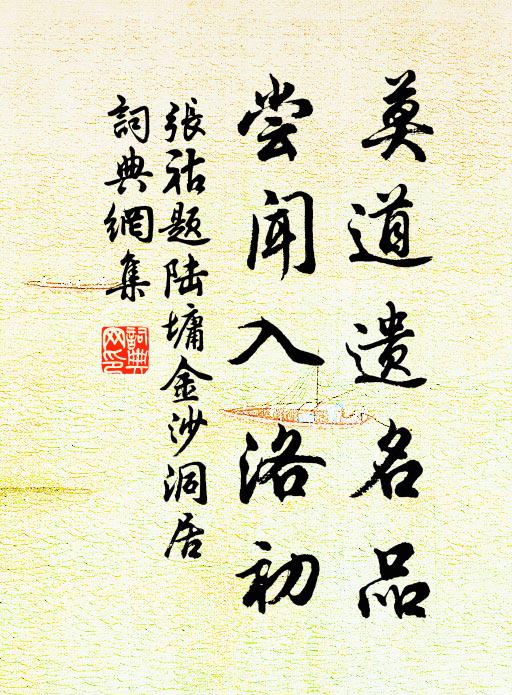 莫道遗名品
尝闻入洛初
張祜题陆墉金沙洞居
詞典網集
詞典
网印